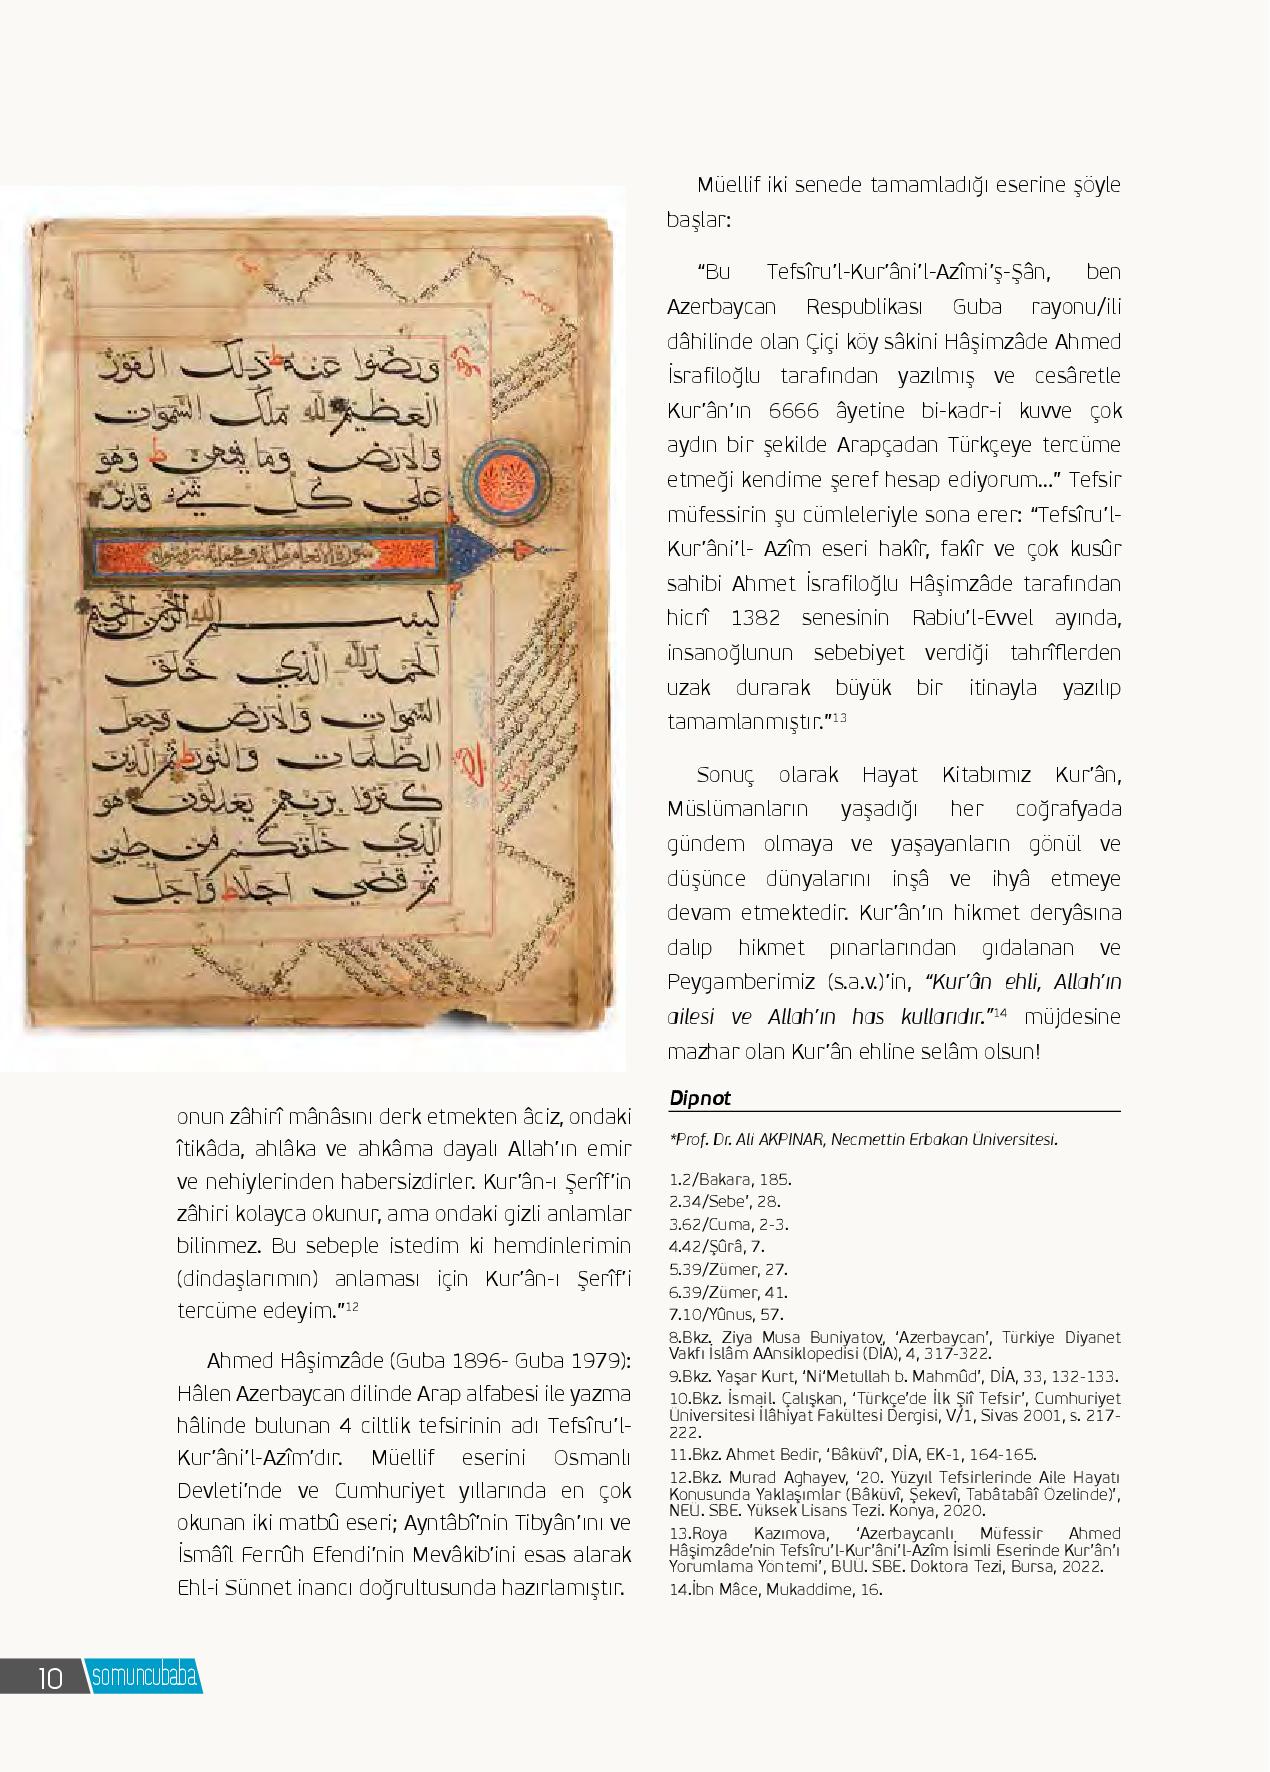 ورضوا عنه ذلك الفوز
العظيم لله ملك السموات
والارض وما فيهن وهو
على كل شيء قدير
بسم الله الرحمن الرحيم
الحمد لله الذي خلق
السموات والارض وجعل
الظلمات والنور ثم الذين
كفروا بربهم يعدلون هو
الذي خلقكم من طين
ثم قضى اجلا واجل
onun zâhirî mânâsını derk etmekten âciz, ondaki
îtikâda, ahlâka ve ahkâma dayalı Allah’ın emir
ve nehiylerinden habersizdirler. Kur’ân-ı Şerîf’in
zâhiri kolayca okunur, ama ondaki gizli anlamlar
bilinmez. Bu sebeple istedim ki hemdinlerimin
(dindaşlarımın) anlaması için Kur’ân-ı Şerîf’i
tercüme edeyim.”12
Ahmed Hâşimzâde (Guba 1896- Guba 1979):
Hâlen Azerbaycan dilinde Arap alfabesi ile yazma
hâlinde bulunan 4 ciltlik tefsirinin adı Tefsîru’l-
Kur’âni’l-Azîm’dır. Müellif eserini Osmanlı
Devleti’nde ve Cumhuriyet yıllarında en çok
okunan iki matbû eseri; Ayntâbî’nin Tibyân’ını ve
İsmâîl Ferrûh Efendi’nin Mevâkib’ini esas alarak
Ehl-i Sünnet inancı doğrultusunda hazırlamıştır.
Müellif iki senede tamamladığı eserine şöyle
başlar:
“Bu Tefsîru’l-Kur’âni’l-Azîmi’ş-Şân, ben
Azerbaycan Respublikası Guba rayonu/ili
dâhilinde olan Çiçi köy sâkini Hâşimzâde Ahmed
İsrafiloğlu tarafından yazılmış ve cesâretle
Kur’ân’ın 6666 âyetine bi-kadr-i kuvve çok
aydın bir şekilde Arapçadan Türkçeye tercüme
etmeği kendime şeref hesap ediyorum...” Tefsir
müfessirin şu cümleleriyle sona erer: “Tefsîru’l-
Kur’âni’l- Azîm eseri hakîr, fakîr ve çok kusûr
sahibi Ahmet İsrafiloğlu Hâşimzâde tarafından
hicrî 1382 senesinin Rabiu’l-Evvel ayında,
insanoğlunun sebebiyet verdiği tahrîflerden
uzak durarak büyük bir itinayla yazılıp
tamamlanmıştır.”13
Sonuç olarak Hayat Kitabımız Kur’ân,
Müslümanların yaşadığı her coğrafyada
gündem olmaya ve yaşayanların gönül ve
düşünce dünyalarını inşâ ve ihyâ etmeye
devam etmektedir. Kur’ân’ın hikmet deryâsına
dalıp hikmet pınarlarından gıdalanan ve
Peygamberimiz (s.a.v.)’in, “Kur’ân ehli, Allah’ın
ailesi ve Allah’ın has kullarıdır.”14 müjdesine
mazhar olan Kur’ân ehline selâm olsun!
Dipnot
*Prof. Dr. Ali AKPINAR, Necmettin Erbakan Üniversitesi.
1.2/Bakara, 185.
2.34/Sebe’, 28.
3.62/Cuma, 2-3.
4.42/Şûrâ, 7.
5.39/Zümer, 27.
6.39/Zümer, 41.
7.10/Yûnus, 57.
8.Bkz. Ziya Musa Buniyatov, ‘Azerbaycan’, Türkiye Diyanet
Vakfı İslâm AAnsiklopedisi (DİA), 4, 317-322.
9.Bkz. Yaşar Kurt, ‘Ni‘Metullah b. Mahmûd’, DİA, 33, 132-133.
10.Bkz. İsmail. Çalışkan, ‘Türkçe’de İlk Şiî Tefsir’, Cumhuriyet
Üniversitesi İlâhiyat Fakültesi Dergisi, V/1, Sivas 2001, s. 217-
222.
11.Bkz. Ahmet Bedir, ‘Bâkûvî’, DİA, EK-1, 164-165.
12.Bkz. Murad Aghayev, ‘20. Yüzyıl Tefsirlerinde Aile Hayatı
Konusunda Yaklaşımlar (Bâkûvî, Şekevî, Tabâtabâî Özelinde)’,
NEÜ. SBE. Yüksek Lisans Tezi. Konya, 2020.
13.Roya Kazımova, ‘Azerbaycanlı Müfessir Ahmed
Hâşimzâde’nin Tefsîru’l-Kur’âni’l-Azîm İsimli Eserinde Kur’ân’ı
Yorumlama Yöntemi’, BUÜ. SBE. Doktora Tezi, Bursa, 2022.
14.İbn Mâce, Mukaddime, 16.
10 somuncubaba